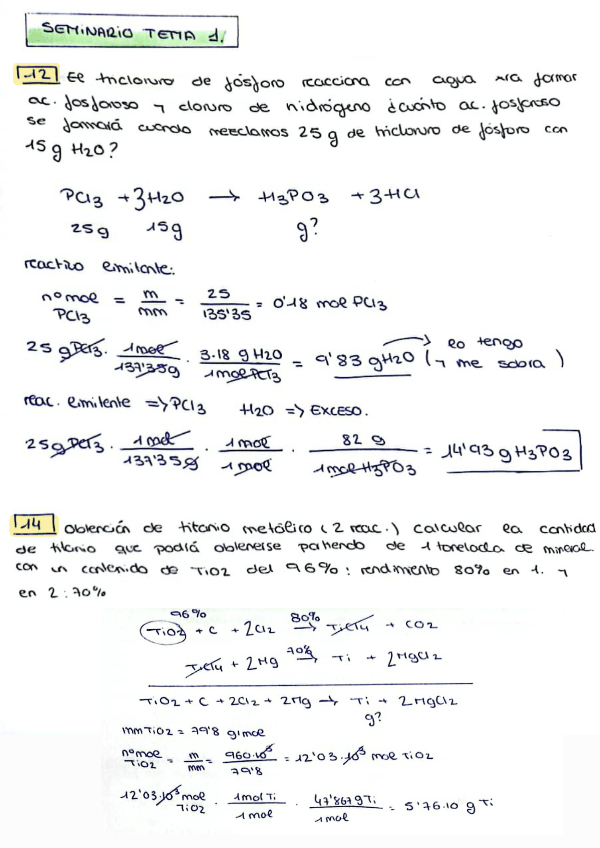 SEMINARIO TEMA 1.
12 El tricloruro de fósforo reacciona con agua xra formar
ac. fosforoso y cloruro de hidrógeno ¿cuánto ac. fosforoso
se formará cuando mezclamos 25 g de tricloruro de fósforo con
15 g H2O?
PCl3 + 3H2O → H3PO3 + 3HCl
25g 15g g?
reactivo limitante:
nº mol PCl3 = m/mm = 25/135'35 = 0'18 mol PCl3
25 g PCl3 · 1mol/137'35g · 3·18 g H2O/1mol PCl3 = 9'83 g H2O (lo tengo y me sobra)
reac. limitante => PCl3 H2O => EXCESO.
25g PCl3 · 1mol/137'35g · 1mol/1mol · 82 g/1mol H3PO3 = 14'93 g H3PO3
14 Obtención de titanio metálico (2 reac.) calcular la cantidad
de titanio que podrá obtenerse partiendo de 1 tonelada de mineral
con un contenido de TiO2 del 96%: rendimiento 80% en 1. y
en 2: 70%
96% 80%
TiO2 + C + 2Cl2 → TiCl4 + CO2
70%
TiCl4 + 2Mg → Ti + 2MgCl2
TiO2 + C + 2Cl2 + 2Mg → Ti + 2MgCl2
g?
mm TiO2 = 79'8 g/mol
nº mol TiO2 = m/mm = 960·10³/79'8 = 12'03·10³ mol TiO2
12'03·10³ mol TiO2 · 1mol Ti/1mol · 47'867g Ti/1mol = 5'76.10 g Ti